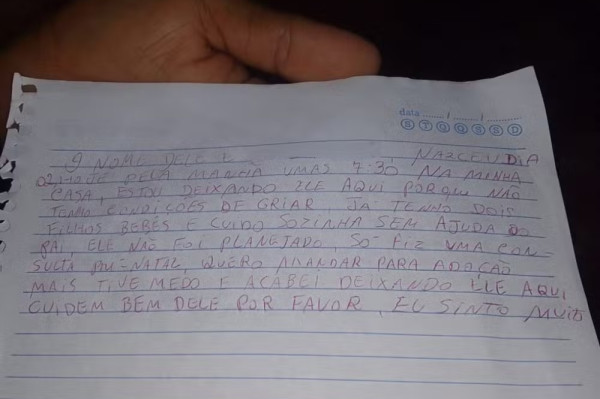 data ____/____/____
D S T Q Q S S
O NOME DELE É NASCEU DIA
02, HOJE PELA MANHÃ UMAS 7:30 NA MINHA
CASA, ESTOU DEIXANDO ELE AQUI PORQUE NÃO
TENHO CONDIÇÕES DE CRIAR, JÁ TENHO DOIS
FILHOS BEBÊS E CUIDO SOZINHA SEM AJUDA DO
PAI, ELE NÃO FOI PLANEJADO, SÓ FIZ UMA CON-
SULTA PRÉ-NATAL, QUERO MANDAR PARA ADOÇÃO
MAIS TIVE MEDO E ACABEI DEIXANDO ELE AQUI,
CUIDEM BEM DELE POR FAVOR, EU SINTO MUITO